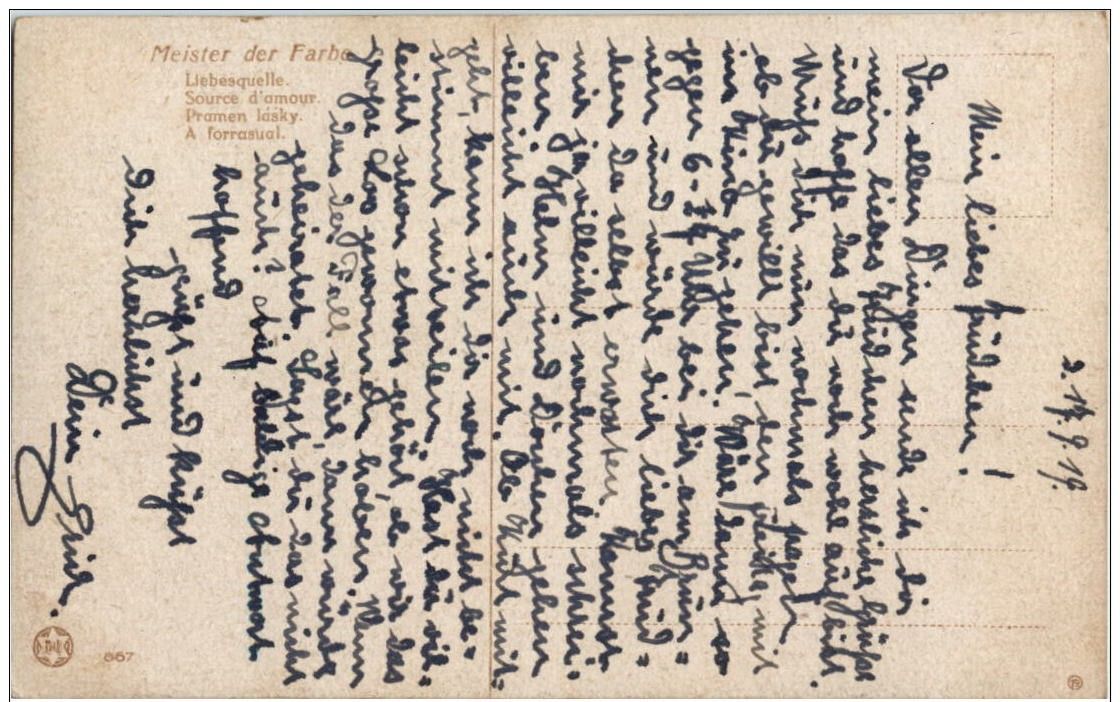 Meister der Farbe
Liebesquelle.
Source d'amour.
Pramen lásky.
A forrasual.
d. 17. 9. 19.
Mein liebes Trudchen!
Vor allen Dingen sende ich dir
mein liebes Mädchen herzliche Grüße
und hoffe das du noch wohl auf seist.
Muß dich nun nochmals fragen
ob du gewillt bist den Freitag mit
ins Kino zu gehen. Wäre dann so
gegen 6-7 Uhr bei dir am Brun=
nen und würde dich liebes
da selbst erwarten. Kannst
mir ja villeicht nochmals schrei=
ben. und Dorchen gehen
villeicht auch mit. Ob Kurt mit=
geht, kann ich dir noch nicht be=
stimmt mitteilen. Hast du vil=
leicht schon etwas gehört, ob wir das
große Los gewonnen haben. Wenn
das der Fall wär, dann würde
geheiratet. Sagst du das nicht
auch? Auf baldige Antwort
hoffend
grüßt und küßt
Dich herzlichst
Dein Erich.
667